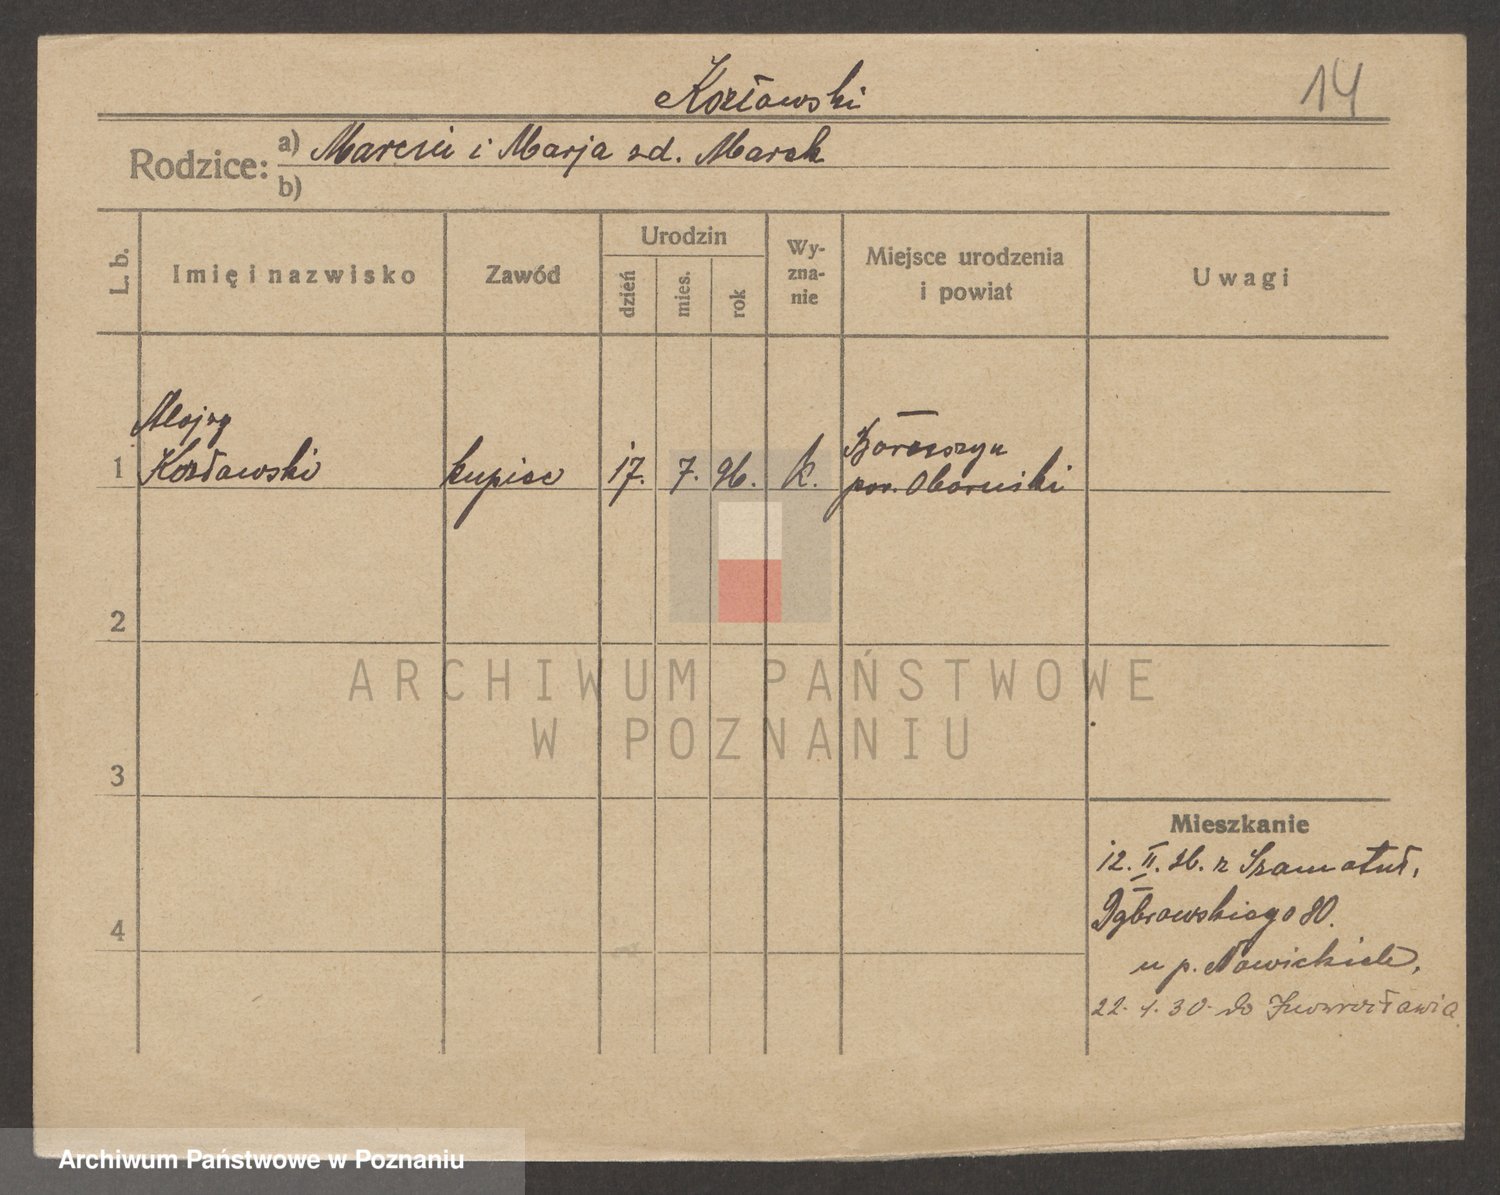 Kozłowski
14
Rodzice: a) Marcin i Marja zd. Marek
b)
L. b.
Imię i nazwisko
Zawód
Urodzin
dzień
mies.
rok
Wy-
zna-
nie
Miejsce urodzenia
i powiat
Uwagi
Alojzy
1 Kozłowski kupiec 17. 7. 96. k.
pow. Obornicki
2
3
4
ARCHIWUM PAŃSTWOWE
W POZNANIU
Mieszkanie
12. II. 26. z Szamotuł,
Dąbrowskiego 80.
u p. Nowickich,
22. 4. 30. do Inowrocławia
Archiwum Państwowe w Poznaniu